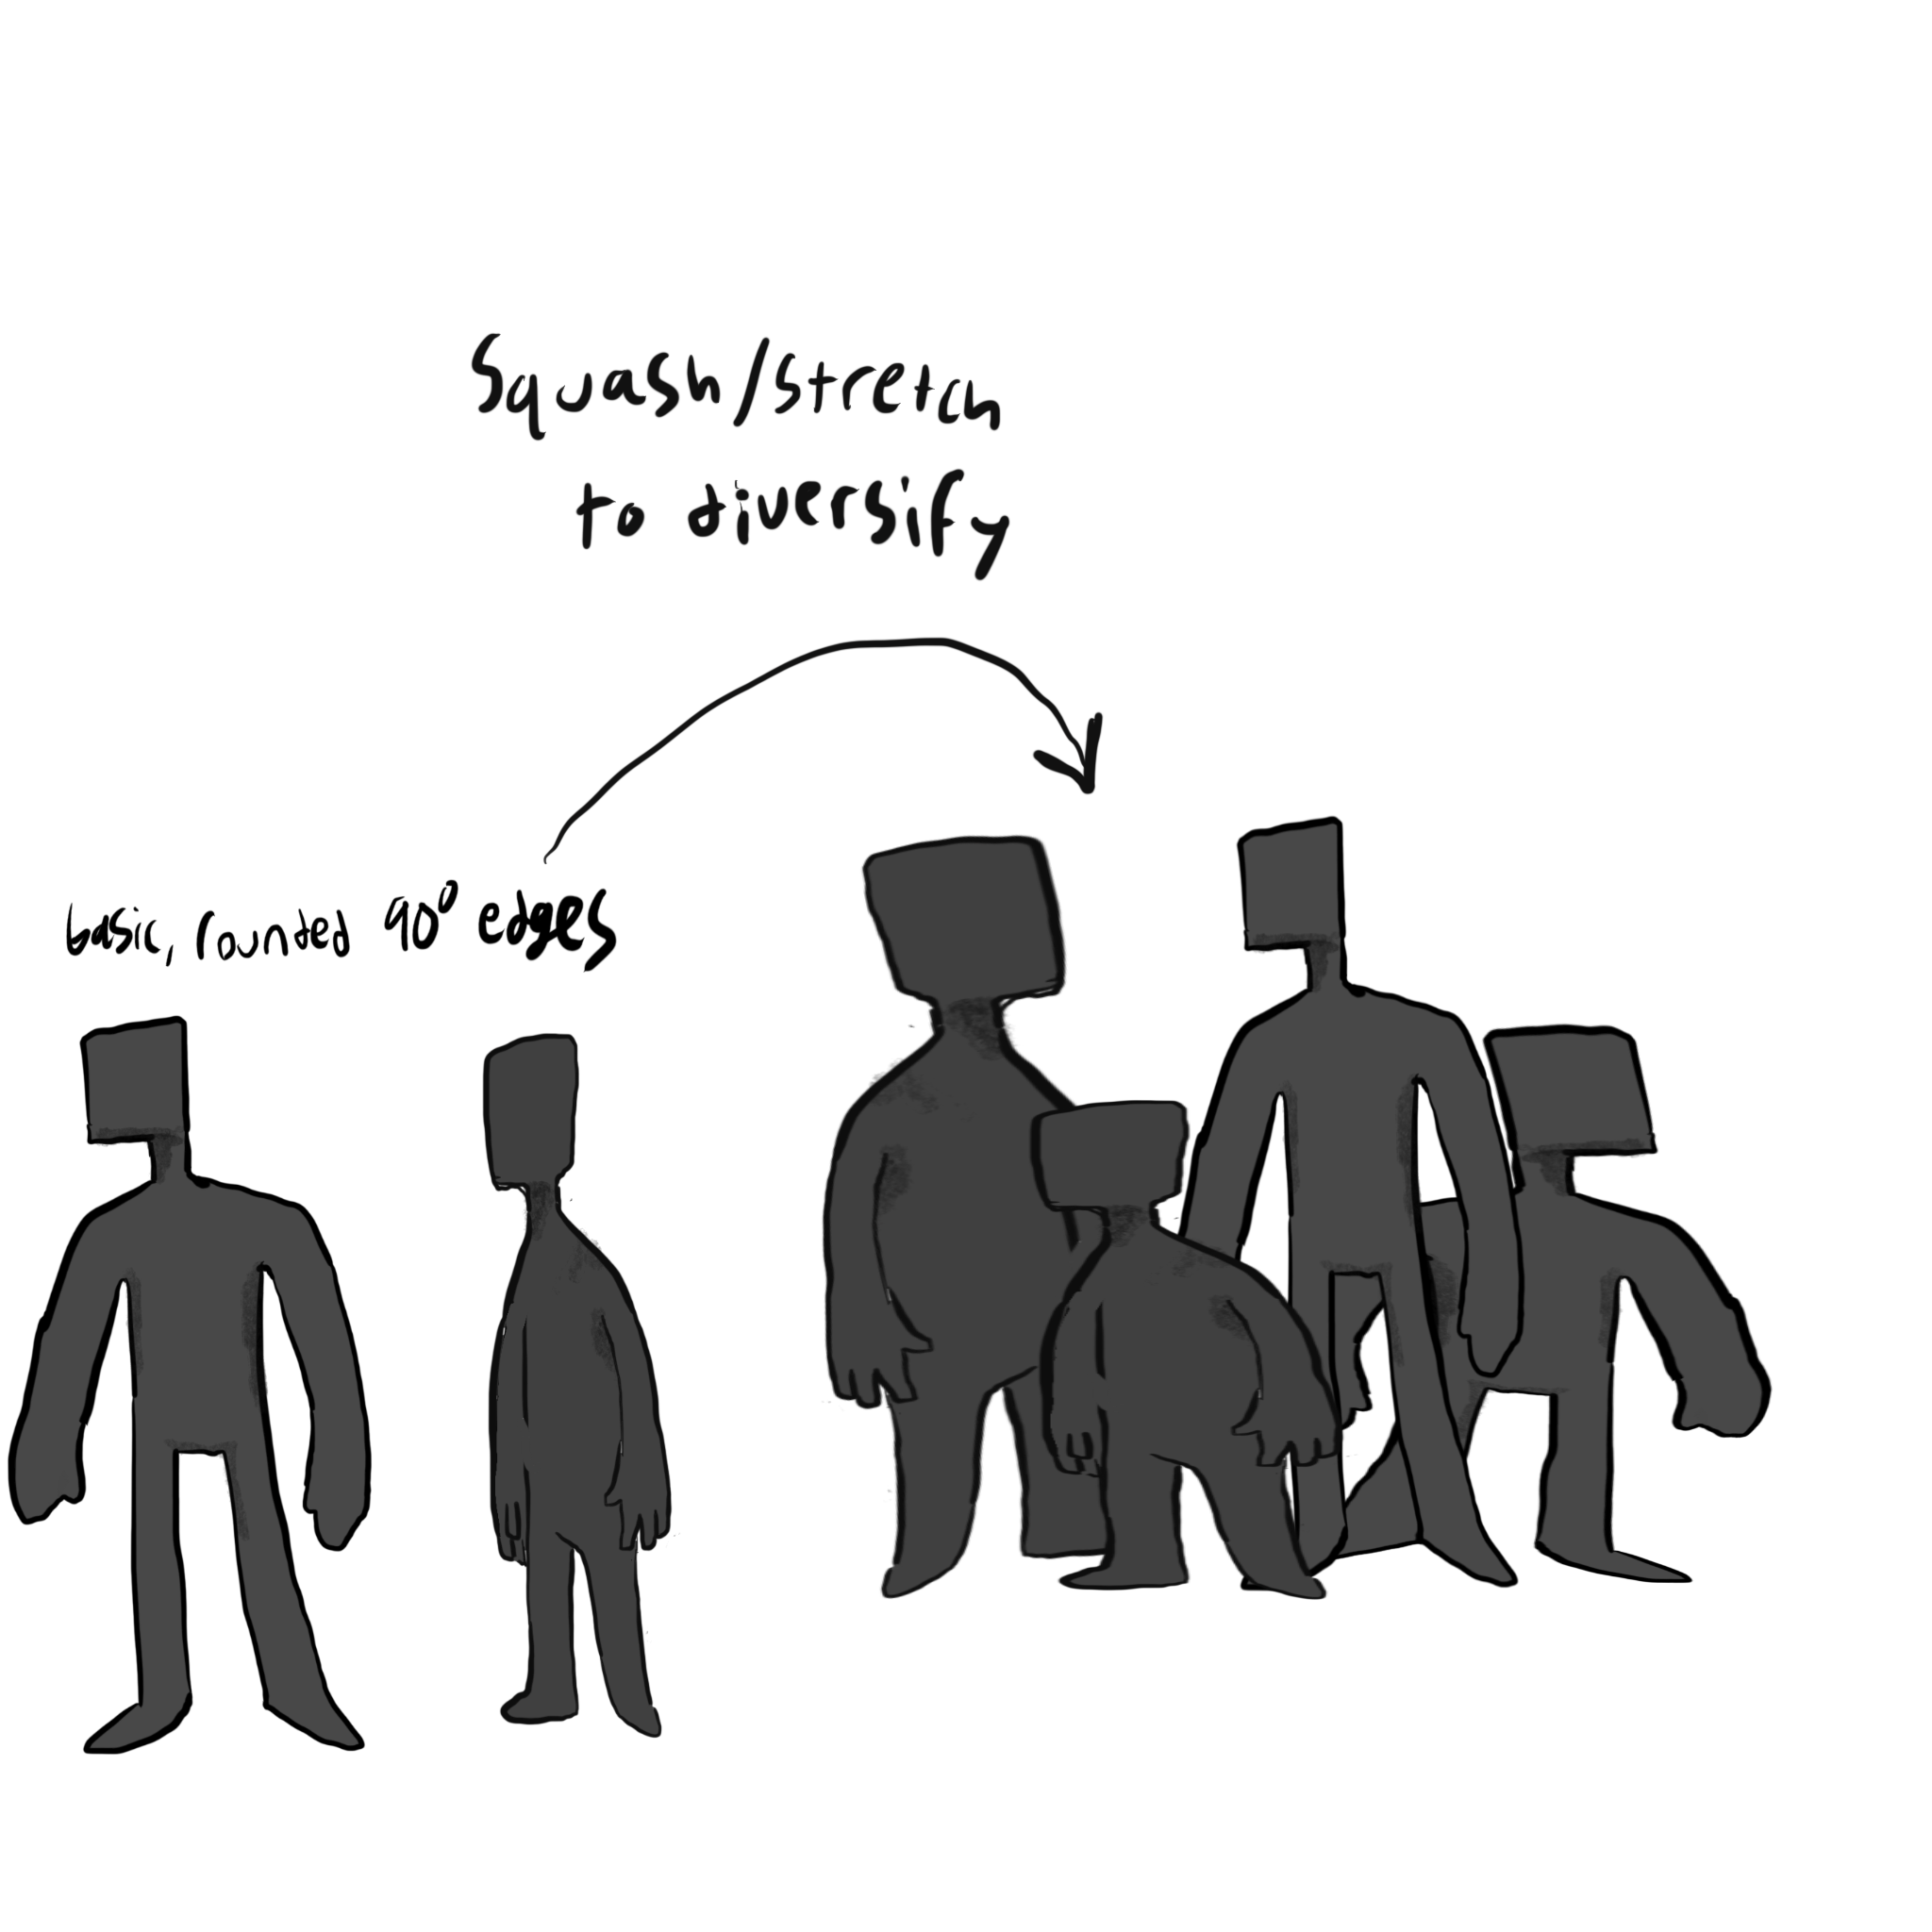 Squash/stretch
to diversify
basic, rounded 90° edges